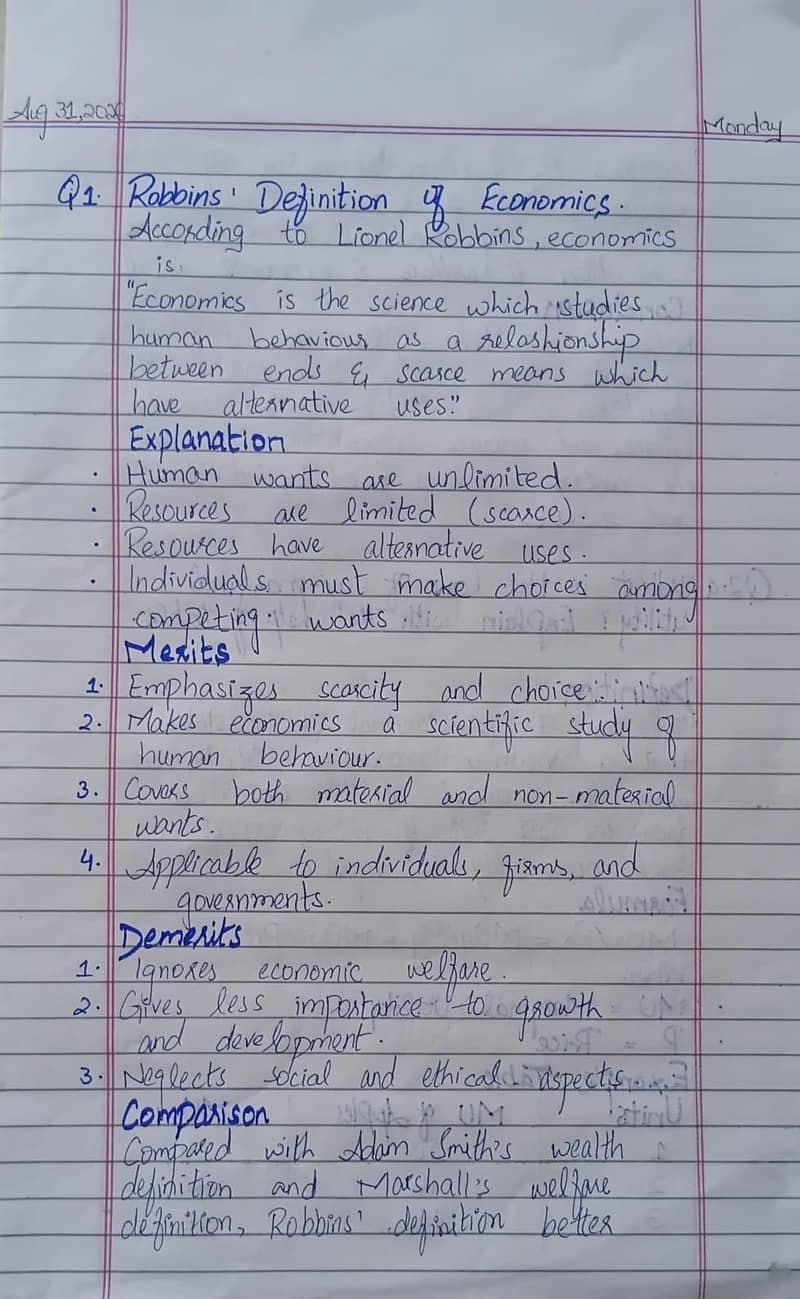 Aug 31, 2026
Monday
Q1. Robbins' Definition of Economics.
According to Lionel Robbins, economics
is.
"Economics is the science which studies
human behaviour as a relashionship
between ends & scarce means which
have alternative uses."
Explanation
· Human wants are unlimited.
· Resources are limited (scarce).
· Resources have alternative uses.
· Individuals must make choices among
competing wants
Merits
1. Emphasizes scarcity and choice.
2. Makes economics a scientific study of
human behaviour.
3. Covers both material and non-material
wants.
4. Applicable to individuals, firms, and
governments.
Demerits
1. Ignores economic welfare.
2. Gives less importance to growth
and development.
3. Neglects social and ethical aspects.
Comparison
Compared with Adam Smith's wealth
definition and Marshall's welfare
definition, Robbins' definition better